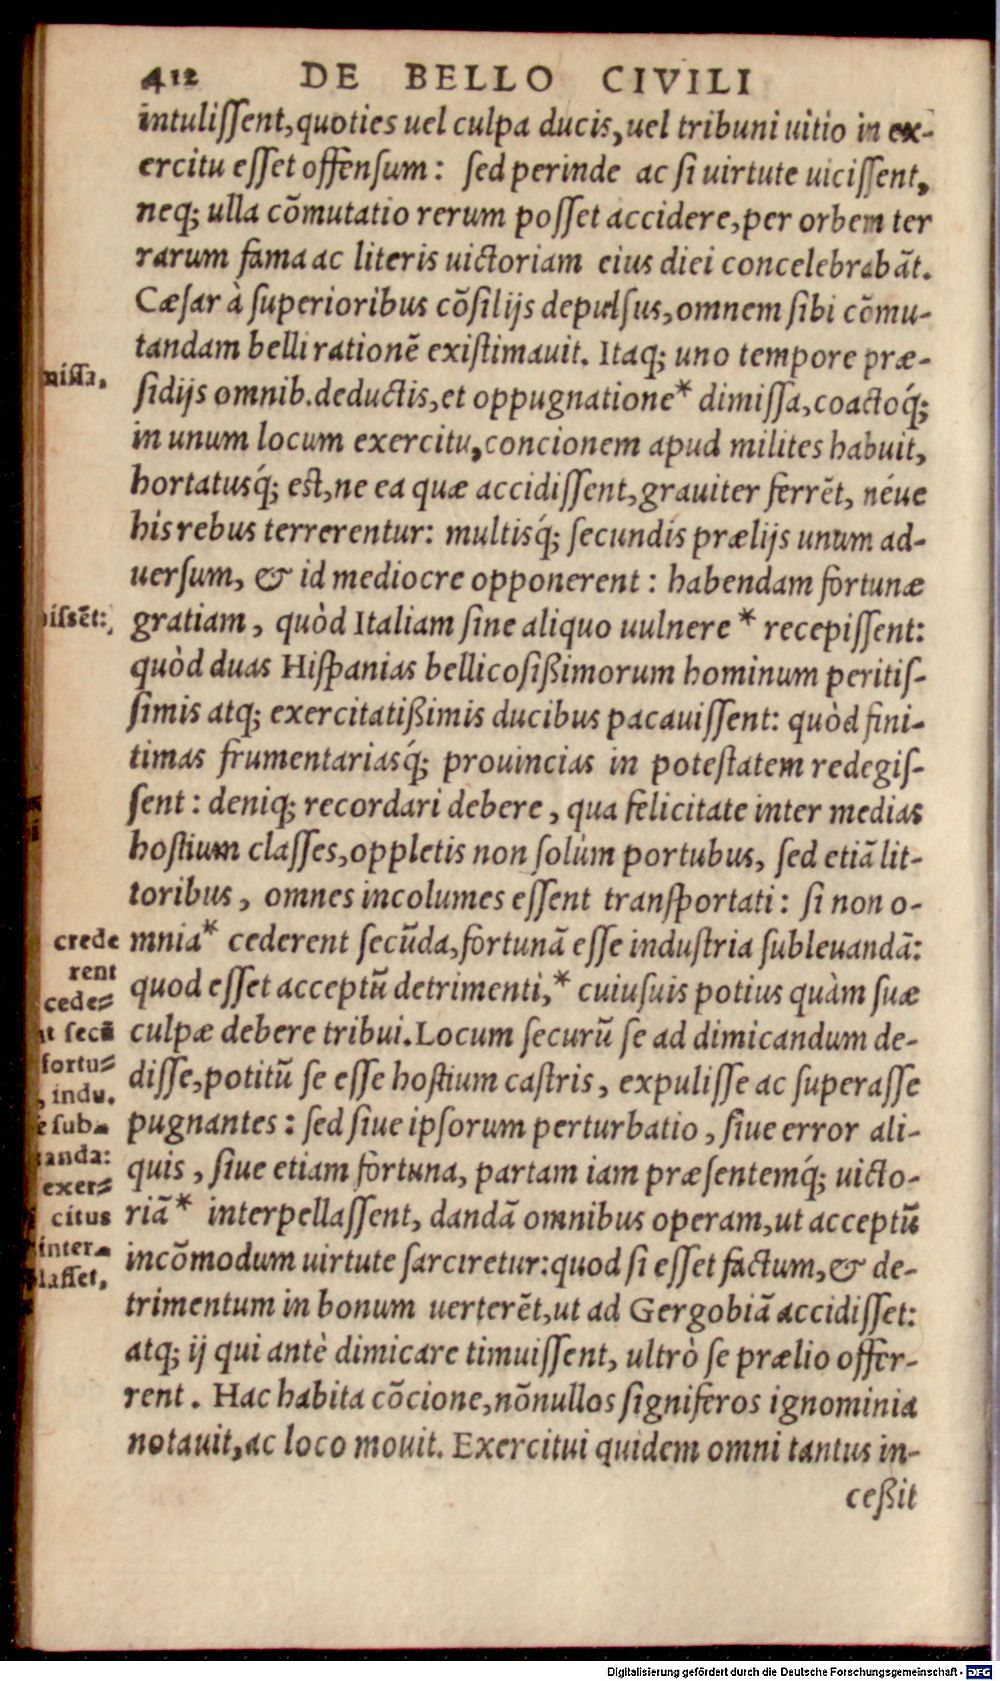 412 DE BELLO CIVILI
intuliſſent,quoties uel culpa ducis,uel tribuni uitio in ex-
ercitu eſſet offenſum: ſed perinde ac ſi uirtute uiciſſent,
neq; ulla cõmutatio rerum poſſet accidere,per orbem ter
rarum fama ac literis uictoriam eius diei concelebrabāt.
Cæſar à ſuperioribus cõſilijs depulſus,omnem ſibi cõmu-
tandam belli rationẽ exiſtimauit. Itaq; uno tempore præ-
niſſa,
ſidijs omnib.deductis,et oppugnatione* dimiſſa,coactoq́;
in unum locum exercitu,concionem apud milites habuit,
hortatusq́; eſt,ne ea quæ accidiſſent,grauiter ferrẽt, néue
his rebus terrerentur: multisq́; ſecundis prælijs unum ad-
uerſum, & id mediocre opponerent: habendam fortunæ
piſſẽt:
gratiam, quòd Italiam ſine aliquo uulnere * recepiſſent:
quòd duas Hiſpanias bellicoſißimorum hominum peritiſ-
ſimis atq; exercitatißimis ducibus pacauiſſent: quòd fini-
timas frumentariasq́; prouincias in poteſtatem redegiſ-
ſent: deniq; recordari debere, qua felicitate inter medias
hoſtium claſſes,oppletis non ſolùm portubus, ſed etiā lit-
toribus, omnes incolumes eſſent tranſportati: ſi non o-
mnia* cederent ſecũda,fortunā eſſe induſtria ſubleuandā:
quod eſſet acceptũ detrimenti,* cuiuſuis potius quàm ſuæ
culpæ debere tribui.Locum ſecurũ ſe ad dimicandum de-
diſſe,potitũ ſe eſſe hoſtium caſtris, expuliſſe ac ſuperaſſe
pugnantes: ſed ſiue ipſorum perturbatio, ſiue error ali-
quis, ſiue etiam fortuna, partam iam præſentemq́; uicto-
riā* interpellaſſent, dandā omnibus operam,ut acceptũ
incõmodum uirtute ſarciretur:quod ſi eſſet factum,& de-
trimentum in bonum uerterẽt,ut ad Gergobiā accidiſſet:
atq; ij qui antè dimicare timuiſſent, ultrò ſe prælio offer-
rent. Hac habita cõcione,nõnullos ſigniferos ignominia
notauit,ac loco mouit. Exercitui quidem omni tantus in-
ceßit
crede
rent
cede⸗
ſecũ
fortu⸗
, indu.
ſub-
anda:
exer⸗
citus
inter-
laſſet,
Digitalisierung gefördert durch die Deutsche Forschungsgemeinschaft - DFG